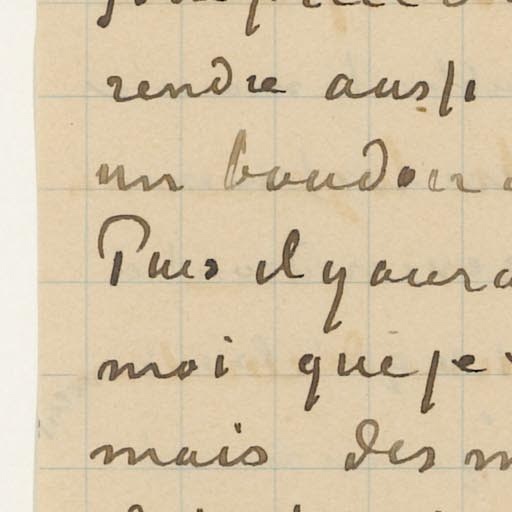 rendre aussi
un boudoir
Puis il y aura
moi que je
mais des m